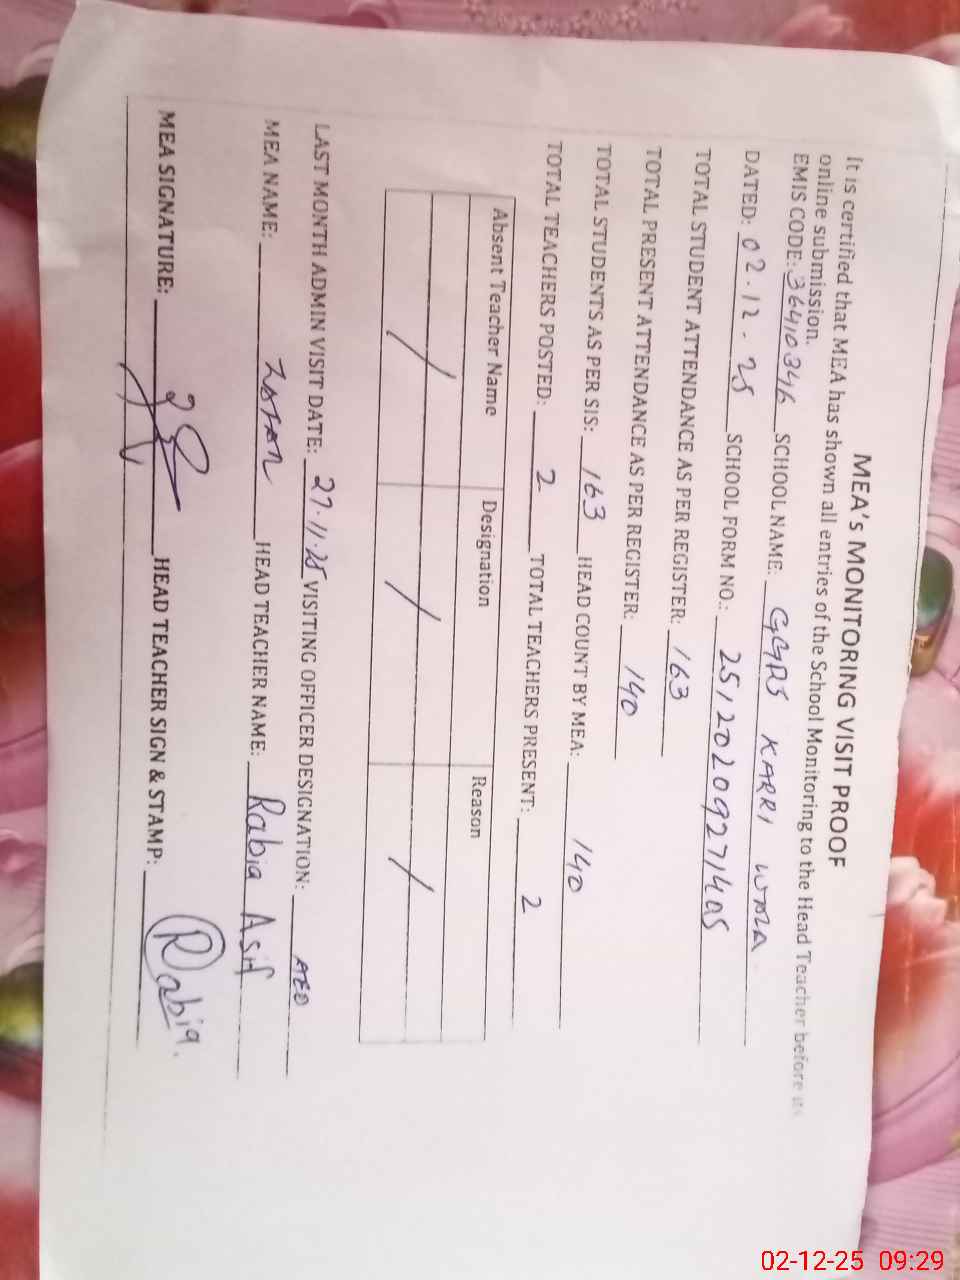 MEA's MONITORING VISIT PROOF
It is certified that MEA has shown all entries of the School Monitoring to the Head Teacher before its
online submission.
EMIS CODE: 36410346 SCHOOL NAME: GGPS KARRI WALA
DATED: 02.12.25 SCHOOL FORM NO.: 25120209271405
TOTAL STUDENT ATTENDANCE AS PER REGISTER: 163
TOTAL PRESENT ATTENDANCE AS PER REGISTER: 140
TOTAL STUDENTS AS PER SIS: 163 HEAD COUNT BY MEA: 140
TOTAL TEACHERS POSTED: 2 TOTAL TEACHERS PRESENT: 2
Absent Teacher Name Designation Reason
/ / /
LAST MONTH ADMIN VISIT DATE: 27.11.25 VISITING OFFICER DESIGNATION: AEO
MEA NAME: HEAD TEACHER NAME: Rabia Asif
MEA SIGNATURE: HEAD TEACHER SIGN & STAMP: Rabia.
02-12-25 09:29